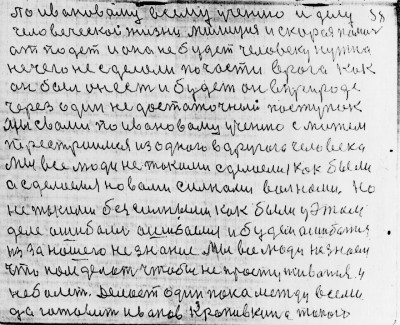 по ивановаму всему учению и делу 38
человеческой жизни милиция и скорая помощ
и она не будет человеку нужна
нечего не сделали по части врага как
он был он есть и будет он в природе
через один не достаточный поступок
мы с вами по ивановаму учению с можем
из одного в другога человека
Мы все люди не такими сделаемся как были
а сделаемся новами силнами волнами. Но
не такими безсилными как были у этом
деле ашибалис ашибаемся и будем ашибатся
из за нашего не знание. Мы все люди не знаем
что нам делать чтобы не простуживатся и
не болет. Делает один пока между всеми
да гатовит иванов а такого